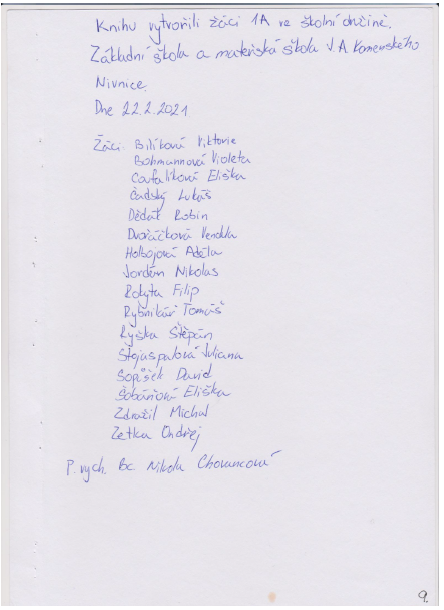 Knihu vytvořili žáci 1A ve školní družině.
Základní škola a mateřská škola J A Komenského
Nivnice.
Dne 22.2.2021
Žáci: Bilíková Viktorie
Bohmannová Violeta
Coufalíková Eliška
Čadský Lukáš
Dědát Robin
Dvořáčková Vendula
Holbojová Adéla
Jordán Nikolas
Rokyta Filip
Rybnikář Tomáš
Ryška Štěpán
Stojaspalová Juliana
Sopůšek David
Šobáňová Eliška
Zdražil Michal
Zetka Ondřej
P. vych. Bc Nikola Chovancová
9.